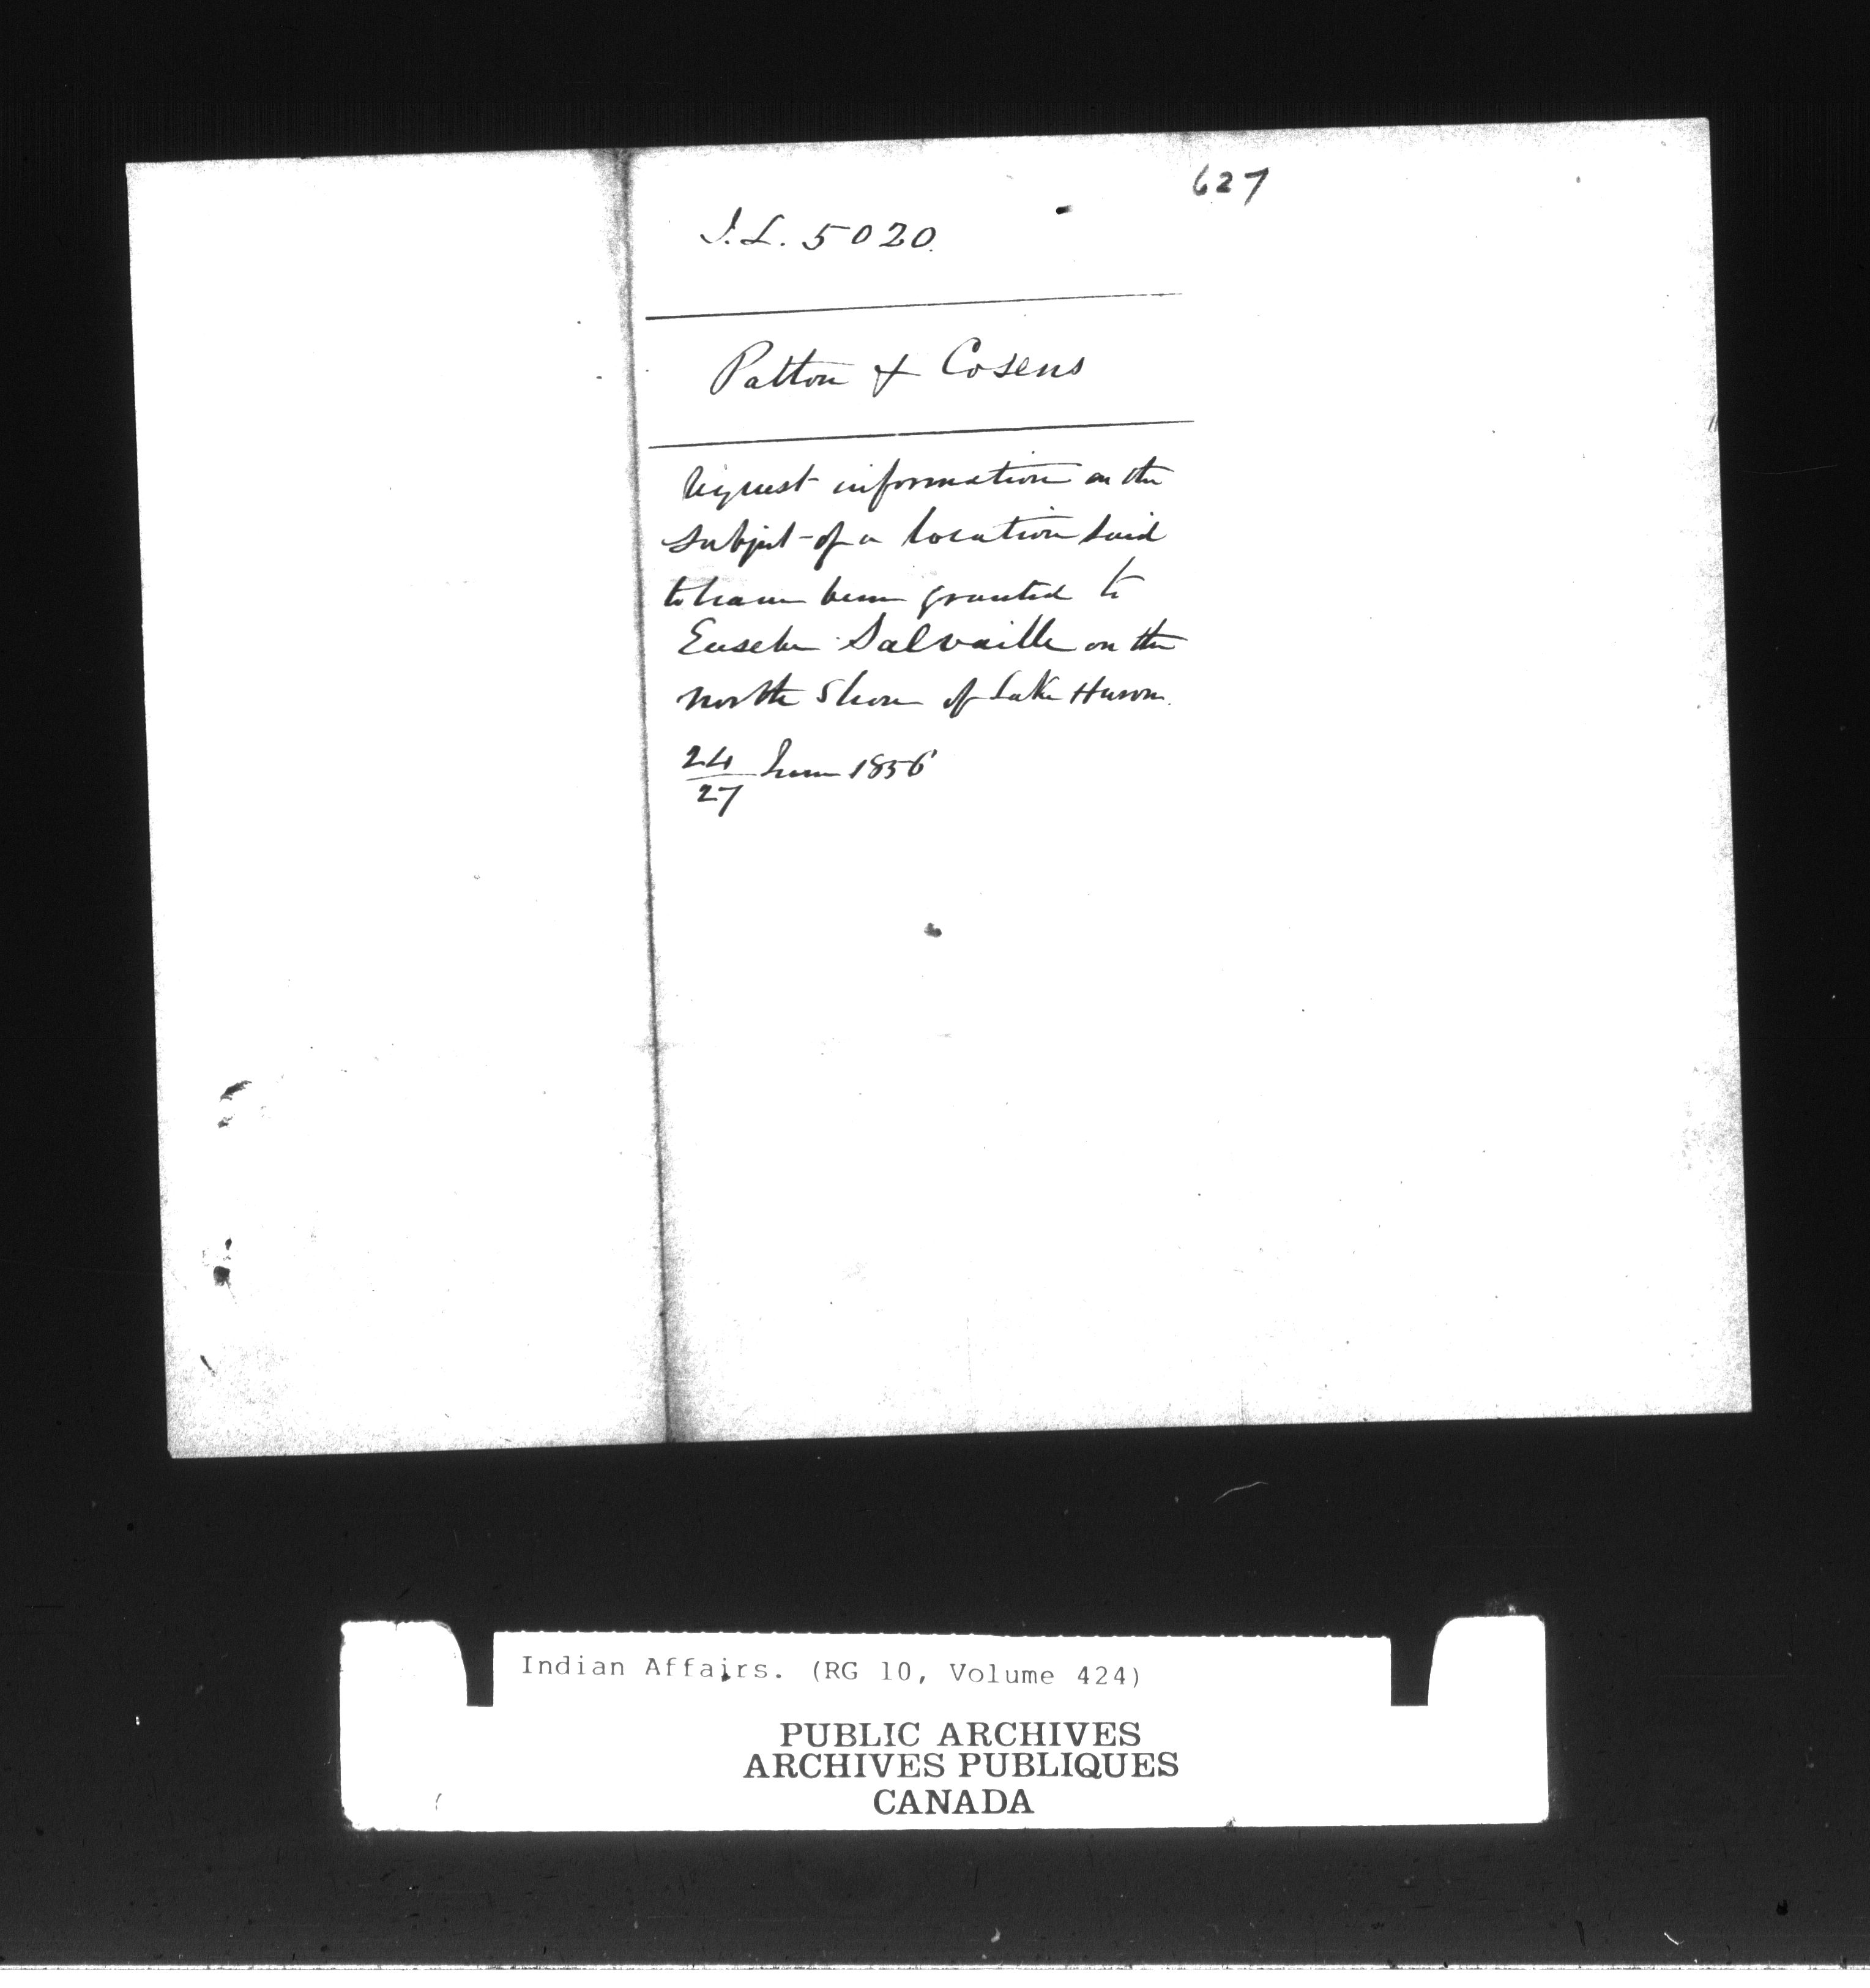 627
I.L. 5020.
Patton & Cosens
request information on the
subject of a location said
to have been granted to
Eusebe Salvaille on the
north Shore of Lake Huron.
24
27 June 1856
Indian Affairs. (RG 10, Volume 424)
PUBLIC ARCHIVES
ARCHIVES PUBLIQUES
CANADA